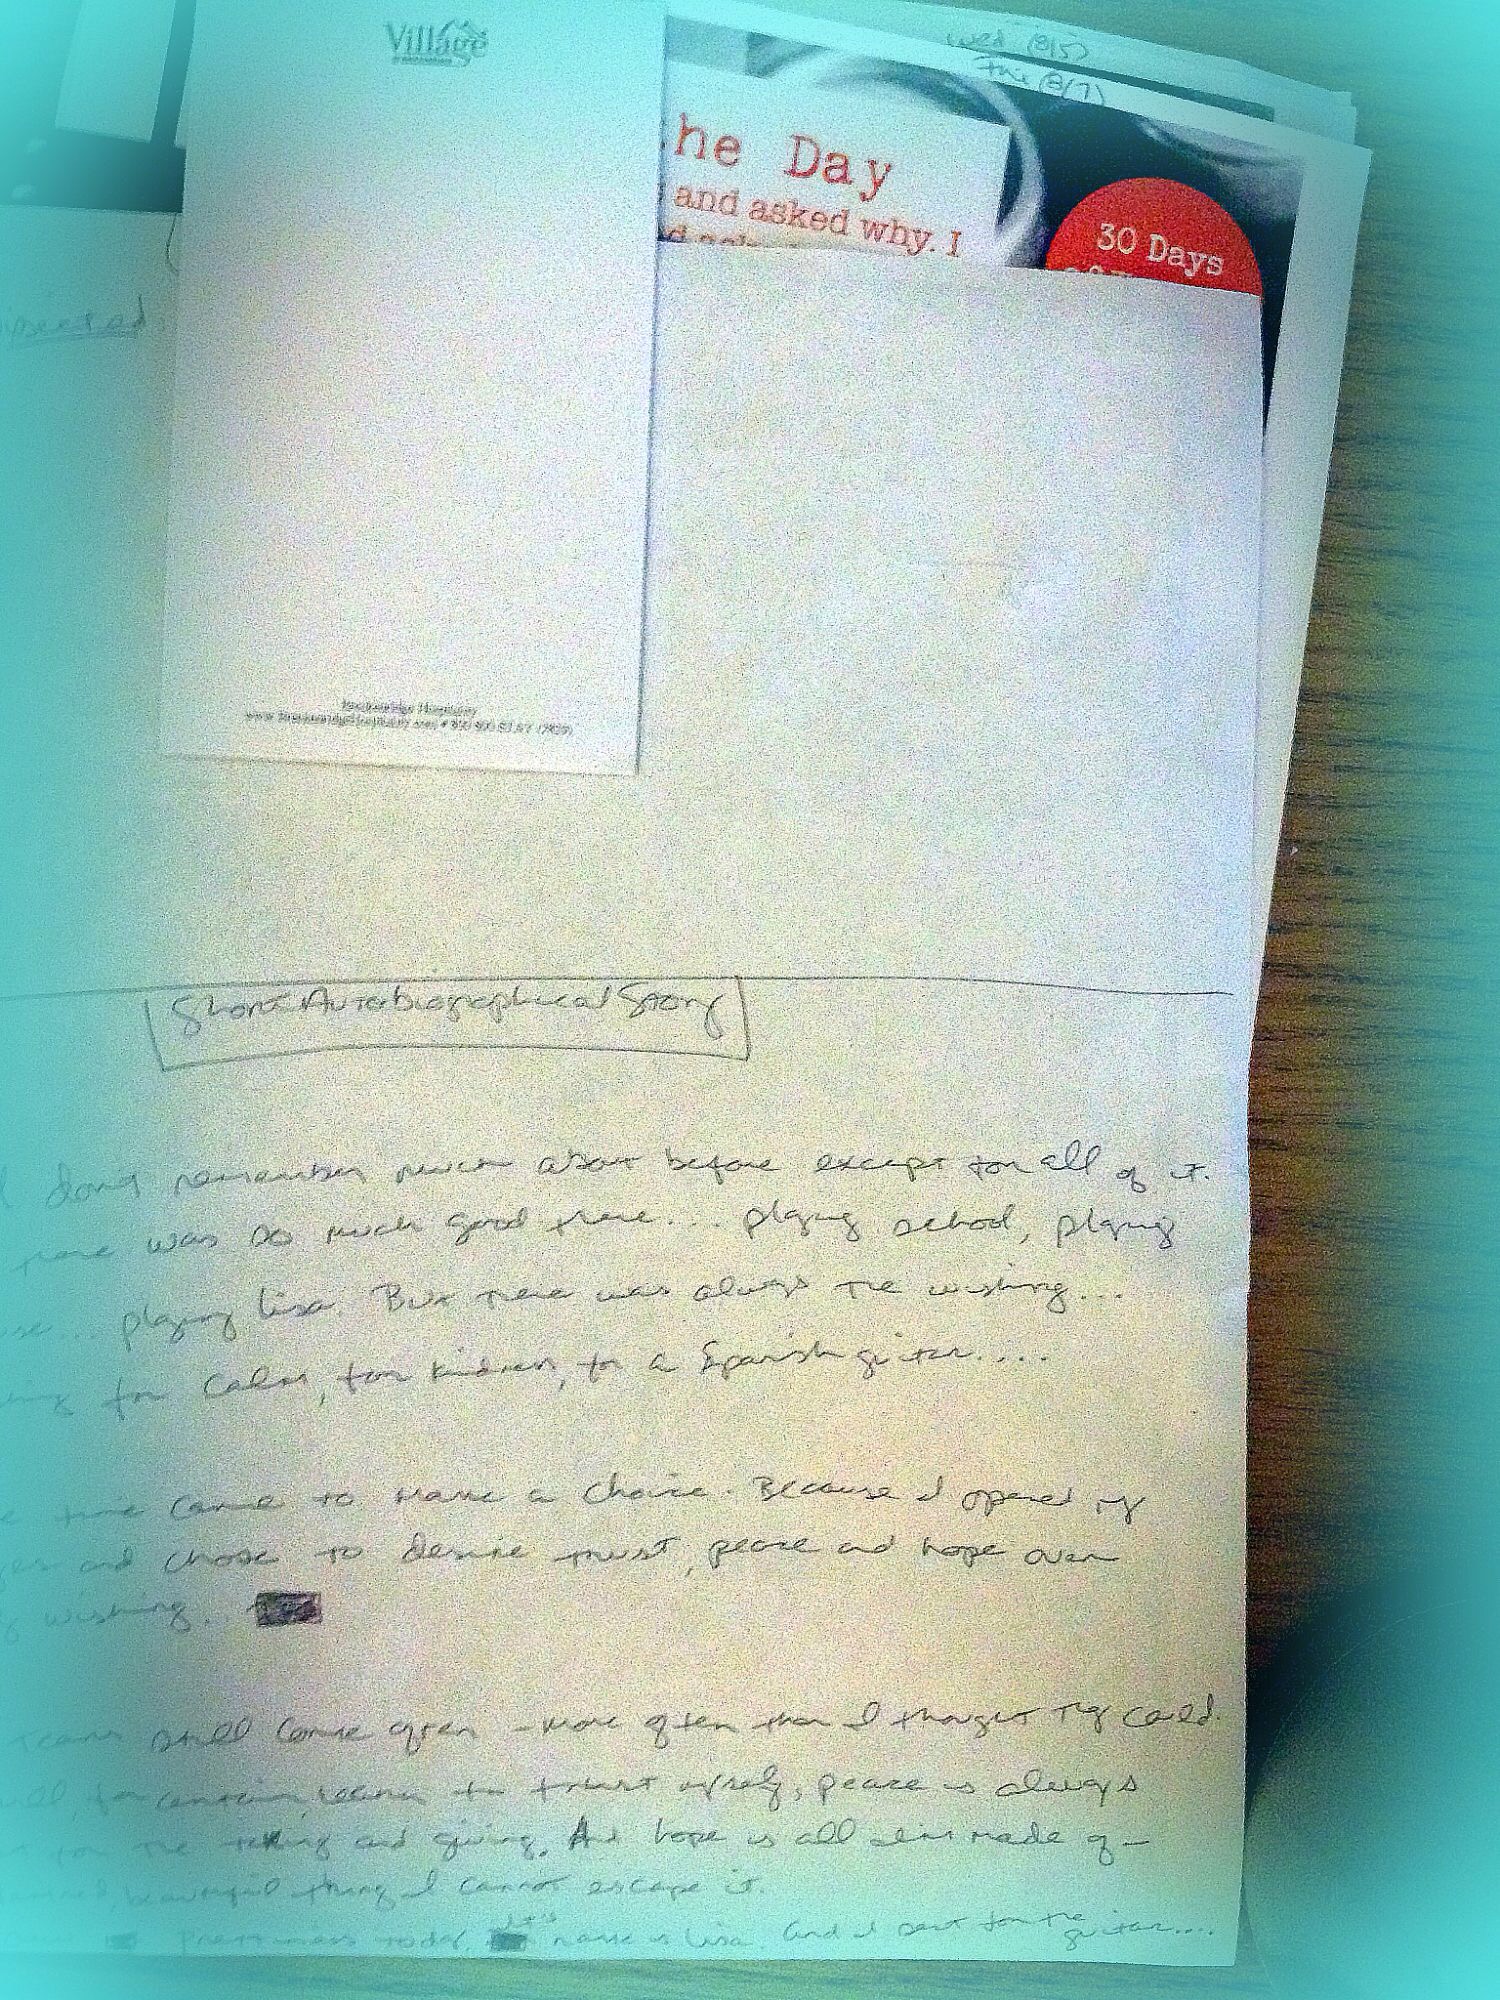 Village
Wed (8/5)
Fri (8/7)
he Day
and asked why. I
30 Days
Breckenridge Hospitality
Short Autobiographical Story
I don't remember much about before except for all of it.
was so much good there... playing school, playing
playing Lisa. But there was always the wishing...
for calm, for kindness, for a Spanish guitar....
time came to make a choice. Because I opened my
and chose to desire trust, peace and hope over
wishing..
still come often - more often than I thought they could.
to trust myself, peace is always
for the taking and giving. And hope is all I am made of -
beautiful thing I cannot escape it.
prettiness today. name is Lisa. And I sent for the guitar....